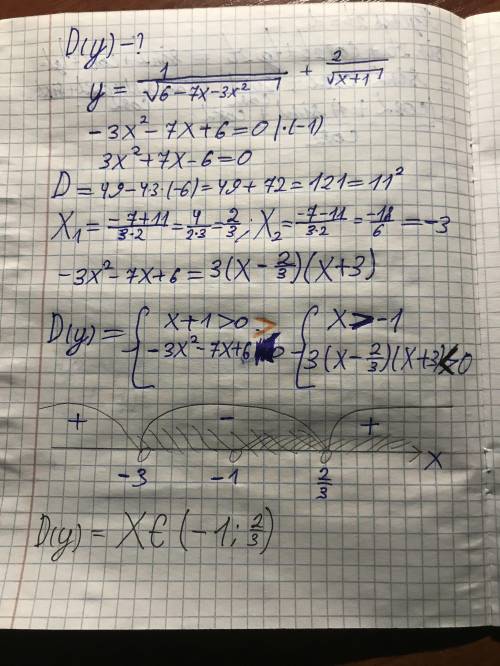 D(y) - ?
y = 1/√(6-7x-3x²) + 2/√(x+1)
-3x²-7x+6=0 |·(-1)
3x²+7x-6=0
D = 49-43·(-6)=49+72=121=11²
X₁ = (-7+11)/(3·2) = 4/(2·3) = 2/3; X₂ = (-7-11)/(3·2) = -18/6 = -3
-3x²-7x+6 = 3(x-2/3)(x+3)
D(y) = { x+1>0 { x>-1
-3x²-7x+6 0 -3(x-2/3)(x+3)<0
+ - +
-3 -1 2/3 x
D(y) = X∈(-1; 2/3)